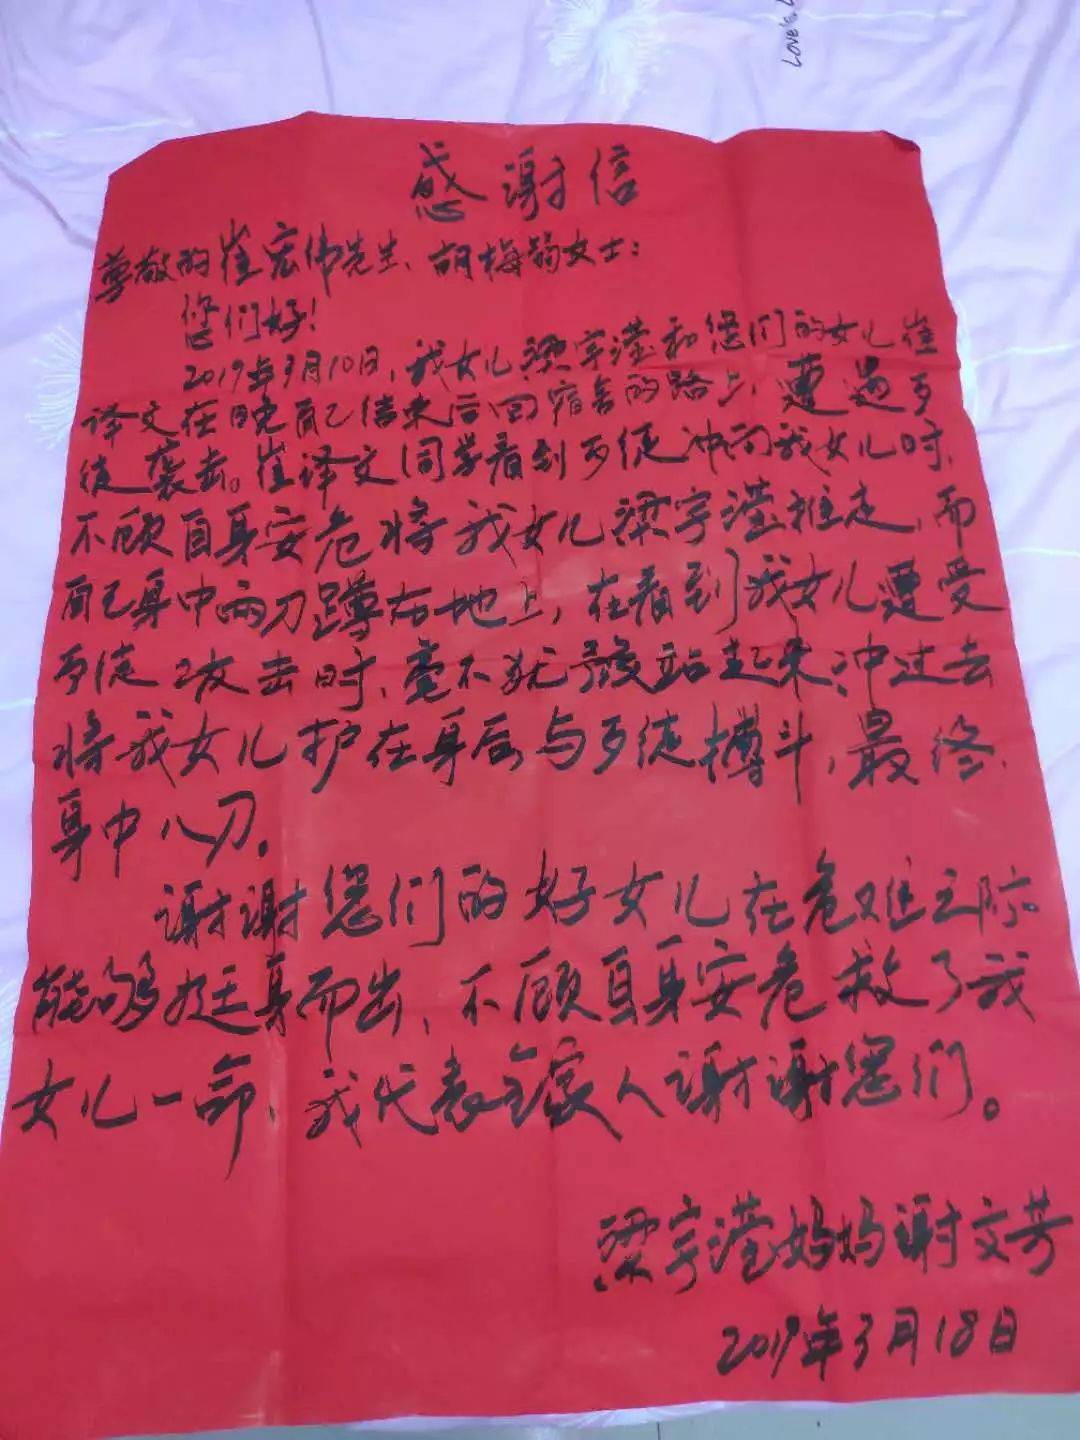 Love's
感谢信
尊敬的崔宏伟先生、胡梅菊女士:
您们好!
2019年3月10日,我女儿梁宇滢和您们的女儿崔
译文在晚自己结束后回宿舍的路上,遭遇歹
徒袭击。崔译文同学看到歹徒冲向我女儿时,
不顾自身安危将我女儿梁宇滢推走,而
自己身中两刀蹲在地上,在看到我女儿遭受
歹徒攻击时,毫不犹豫站起来冲过去
将我女儿护在身后与歹徒搏斗,最终
身中八刀。
谢谢您们的好女儿在危难之际
能够挺身而出、不顾自身安危救了我
女儿一命,我代表全家人谢谢您们。
梁宇滢妈妈谢文芳
2019年3月18日